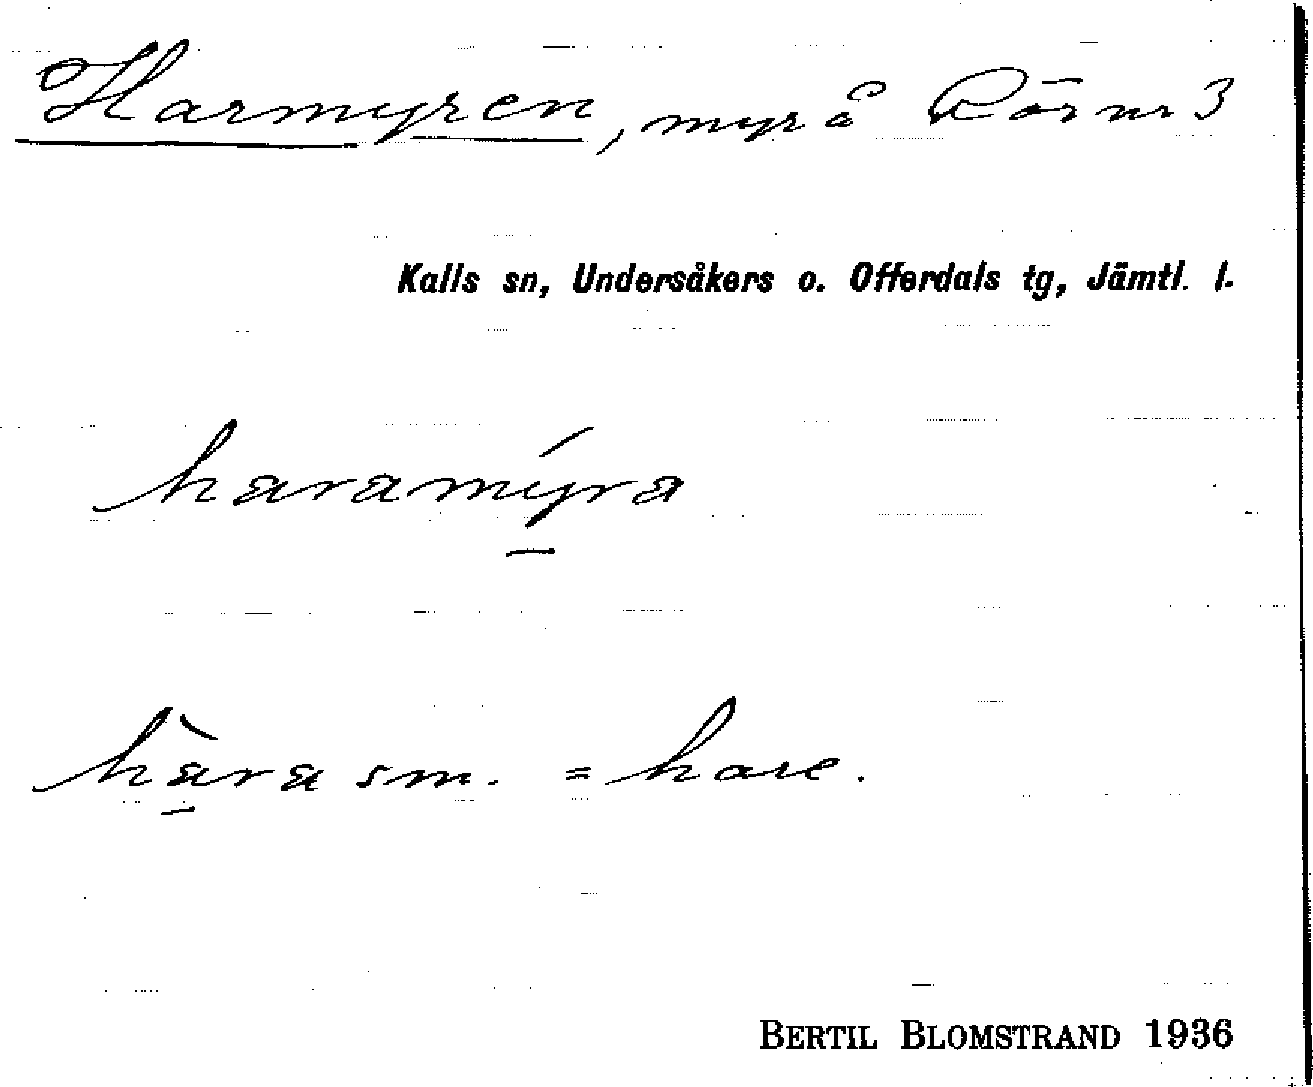 Harmyren, myr å Rör nr 3
Kalls sn, Undersåkers o. Offerdals tg, Jämtl. l.
haramýra
hàra sm. = hare.
BERTIL BLOMSTRAND 1936